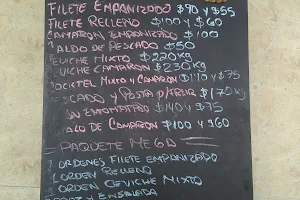 FILETE EMPANIZADO $90 y $55
FILETE RELLENO $100 y $60
CAMARON EMPANIZADO $100
CALDO DE PESCADO $50
CEVICHE MIXTO $220 kg
CEVICHE CAMARON $230 kg
COCKTEL MIXTO y CAMARON $110 y $75
PESCADO y POSTA P/FREIR $170 kg
$140 y $75
CALDO DE CAMARON $100 y $60
PAQUETE MEGA
2 ORDENES FILETE EMPANIZADO
1 ORDEN RELLENO
1 ORDEN CEVICHE MIXTO
ARROZ y ENSALADA